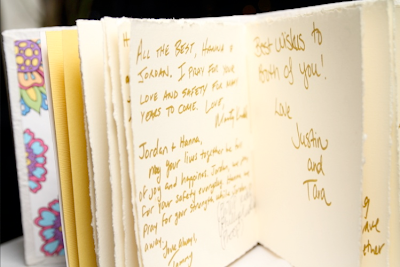 ALL THE BEST, HANNA &
JORDAN. I PRAY FOR YOUR
LOVE AND SAFETY FOR MANY
YEARS TO COME. LOVE,
Jordan & Hanna,
May your lives together be full
of joy and happiness. Jordan
for your safety everyday. Hanna
Pray for your strength while Jordan
away.
Love always,
Tammy
Best wishes to
both of you!
Love
Justin
and
Tara